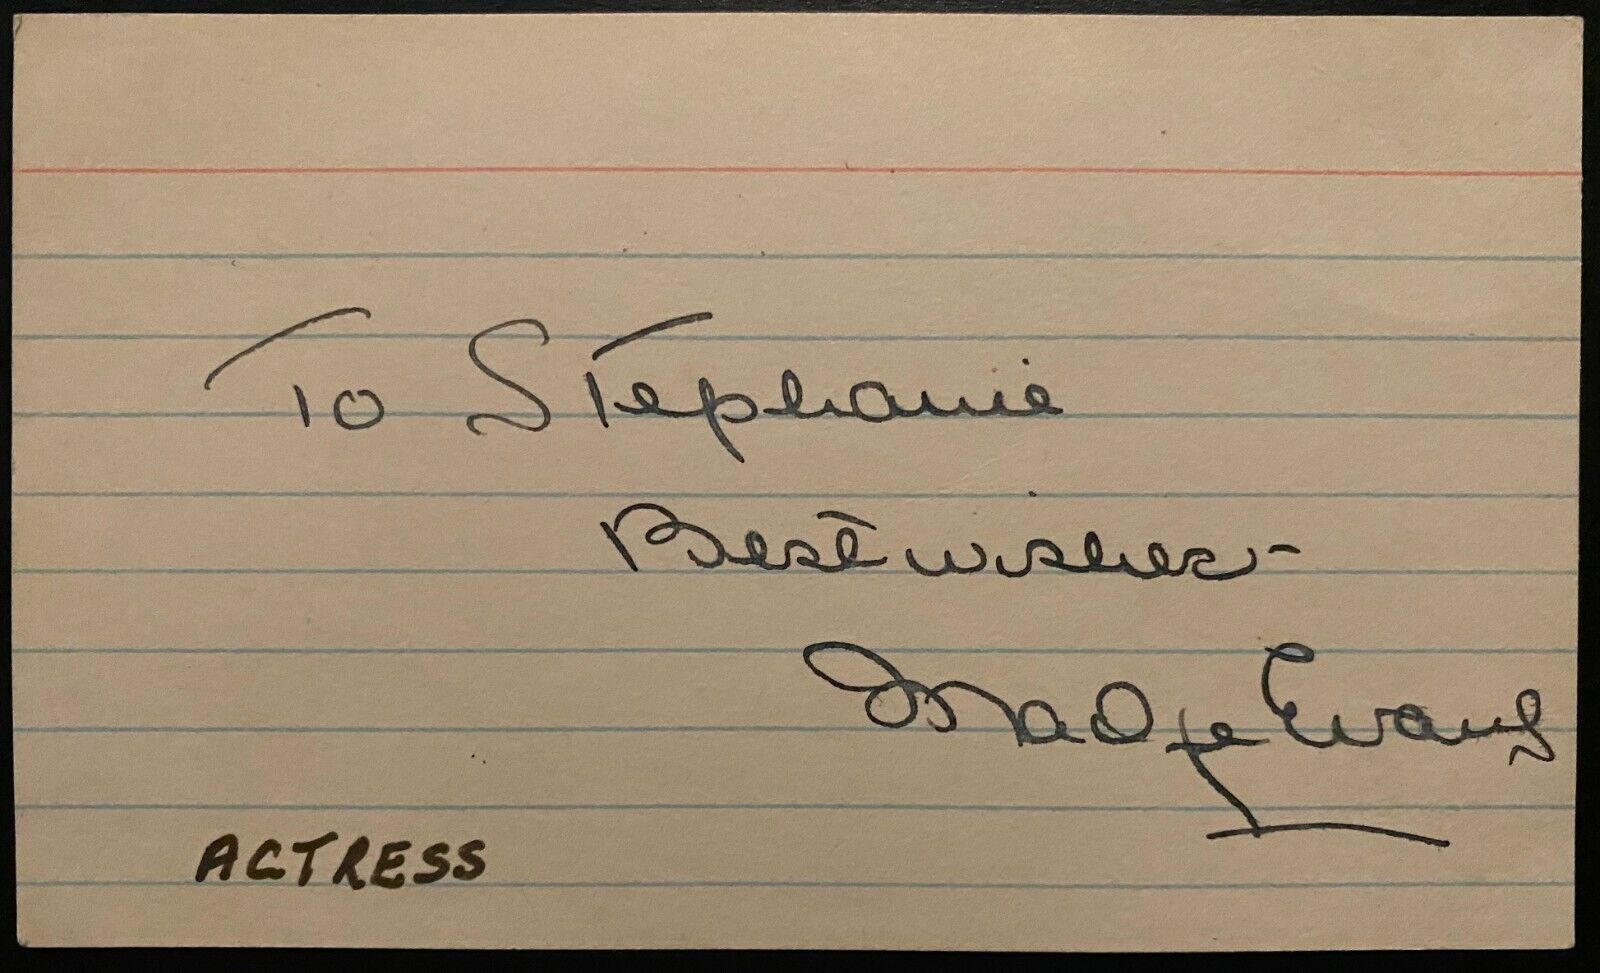 To Stephanie
Best wishes -
Madge Evans
ACTRESS